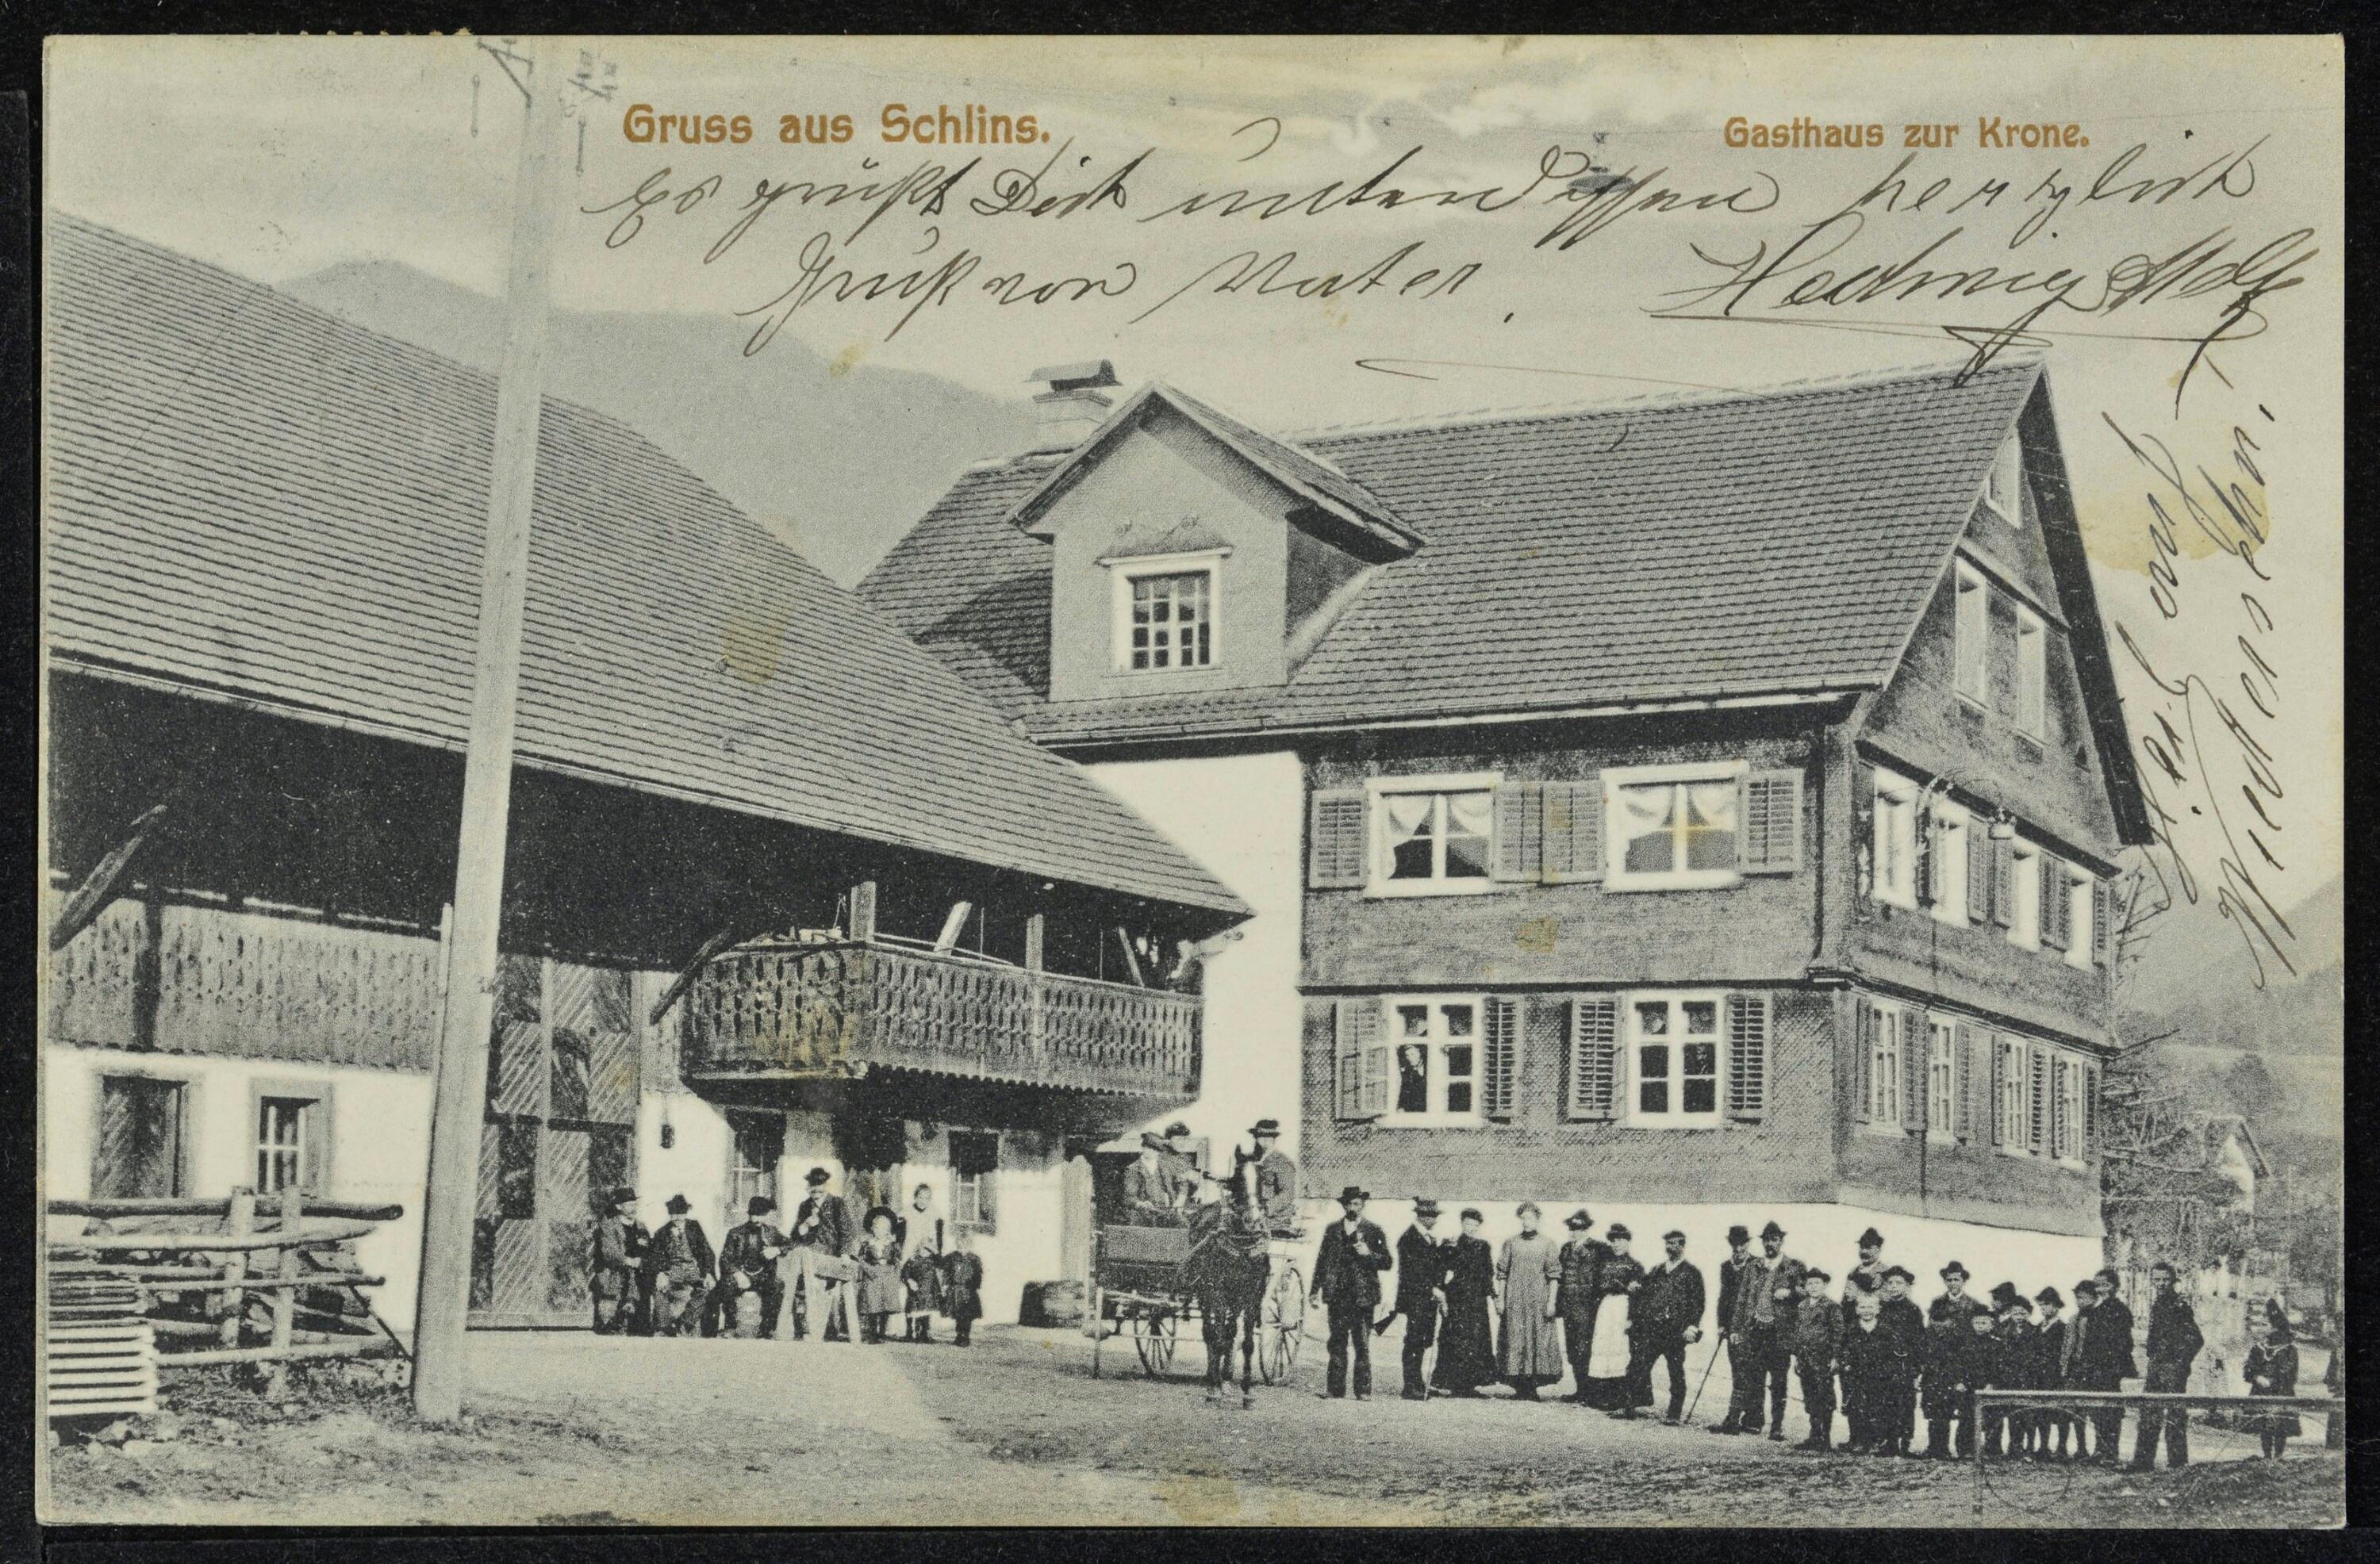 Gruss aus Schlins.
Gasthaus zur Krone.
Es grüßt Dich unterdessen herzlich
Gruß von Vater. Hedwig
auf
Wiedersehn.